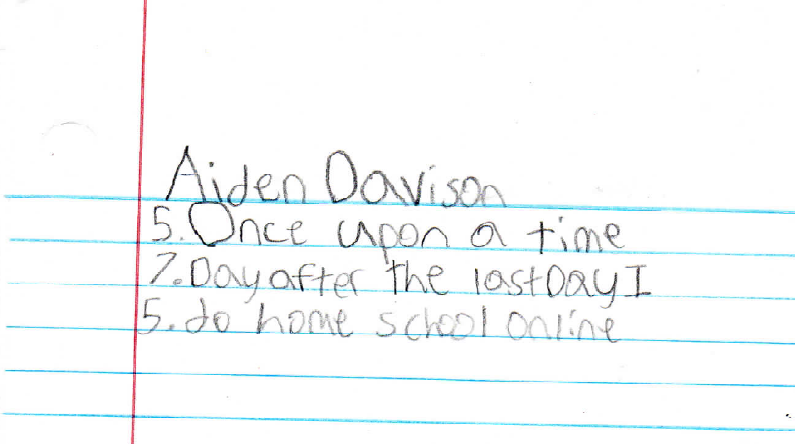 Aiden Davison
5. Once upon a time
7. Day after the last Day I
5. do home school online